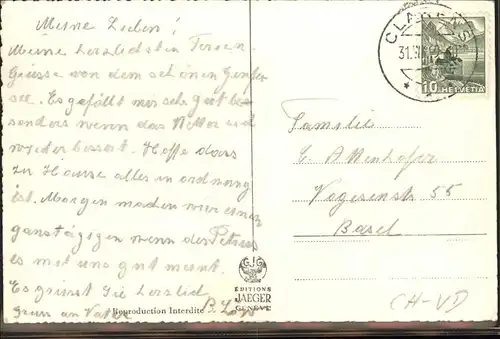 Meine Lieben!
Meine herzlichsten Ferien
Grüsse von dem schönen Genfer
see. Es gefällt mir sehr gut be
sonders wenn das Wetter sich
wieder bessert. Hoffe dass
zu Hause alles in ordnung
ist. Morgen machen wir einen
ganstägigen wenn der Petrus
es mit uns gut meint.
Es grüsst Sie herzlich
Gruss an Vater
CLARENS
10
HELVETIA
Familie
Vogesenstr 55
Basel
EDITIONS
JAEGER
GENÈVE
Reproduction Interdite
CH-VD